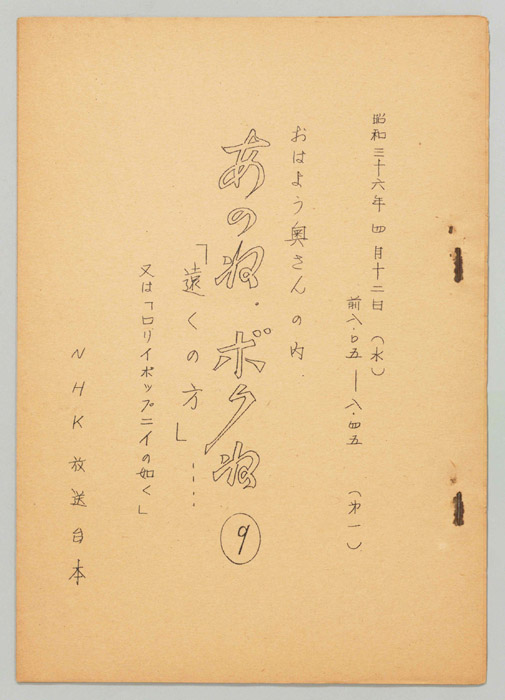 昭和三十六年四月十二日（水）
前八.〇五―八.四五（第一）
おはよう奥さんの内
あのね.ボクね 9
「遠くの方」……
又は「ロリイポップニイの如く」
NHK放送台本